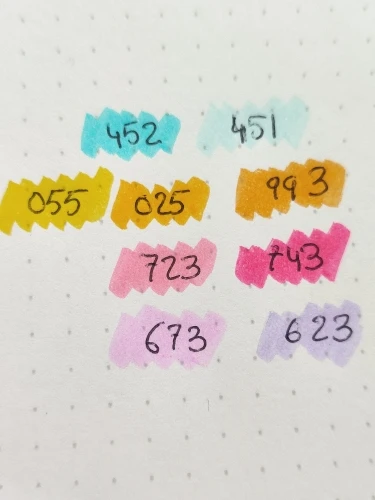 452 451
055 025 993
723 743
673 623